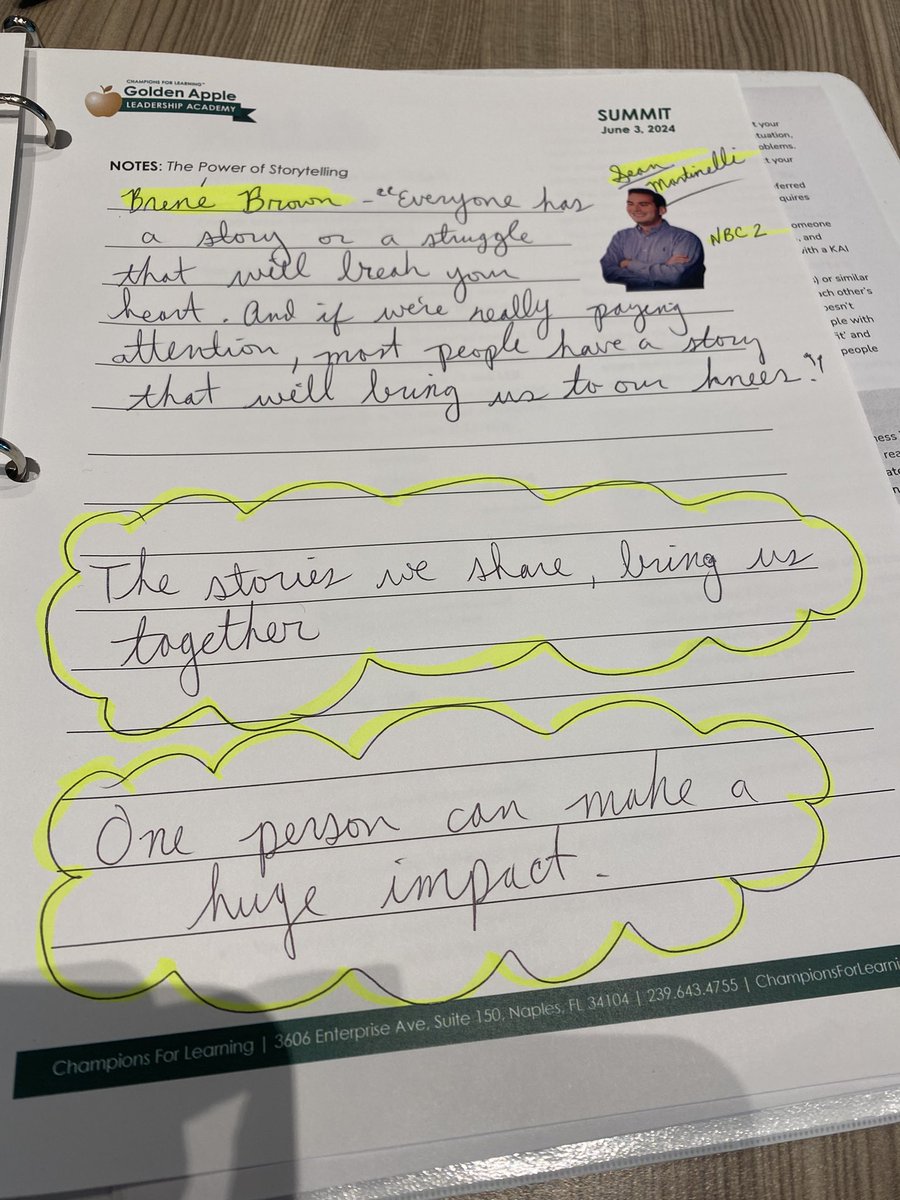 CHAMPIONS FOR LEARNING™
Golden Apple
LEADERSHIP ACADEMY
SUMMIT
June 3, 2024
NOTES: The Power of Storytelling
Sean
Martinelli
NBC 2
Brené Brown - "Everyone has
a story or a struggle
that will break your
heart. And if we're really paying
attention, most people have a story
that will bring us to our knees."
The stories we share, bring us
together
One person can make a
huge impact.
Champions For Learning | 3606 Enterprise Ave, Suite 150, Naples, FL 34104 | 239.643.4755 | ChampionsForLearni
t your
tuation,
oblems.
t your
ferred
quires
omeone
, and
with a KAI
) or similar
ch other's
esn't
ple with
it' and
people
ness
rea
ate